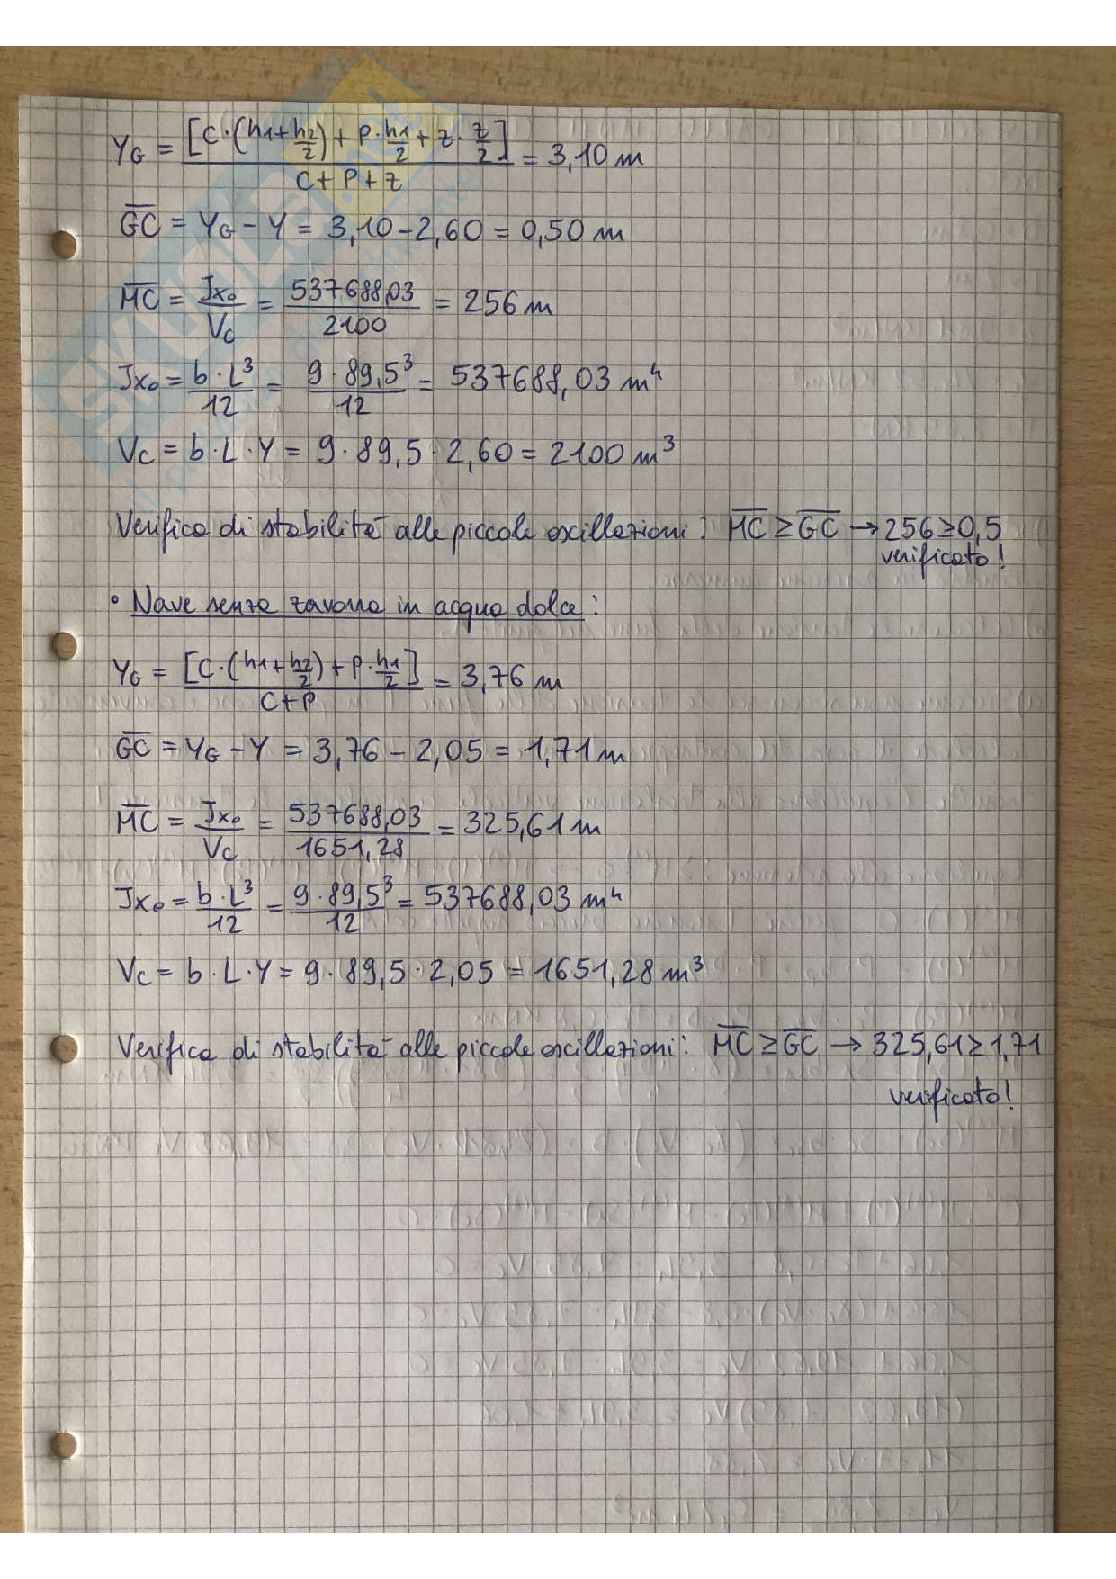 YG = [C·(h1+h2/2) + P·h1/2 + z·z/2] / C+P+z = 3,10 m
GC = YG - Y = 3,10 - 2,60 = 0,50 m
MC = Jxo/Vc = 537688,03/2100 = 256 m
Jxo = b·L³/12 = 9·89,5³/12 = 537688,03 m⁴
Vc = b·L·Y = 9·89,5·2,60 = 2100 m³
Verifica di stabilità alle piccole oscillazioni: MC ≥ GC → 256 ≥ 0,5
verificato!
• Nave senza zavorra in acqua dolce:
YG = [C·(h1+h2/2) + P·h1/2] / C+P = 3,76 m
GC = YG - Y = 3,76 - 2,05 = 1,71 m
MC = Jxo/Vc = 537688,03/1651,28 = 325,61 m
Jxo = b·L³/12 = 9·89,5³/12 = 537688,03 m⁴
Vc = b·L·Y = 9·89,5·2,05 = 1651,28 m³
Verifica di stabilità alle piccole oscillazioni: MC ≥ GC → 325,61 ≥ 1,71
verificato!